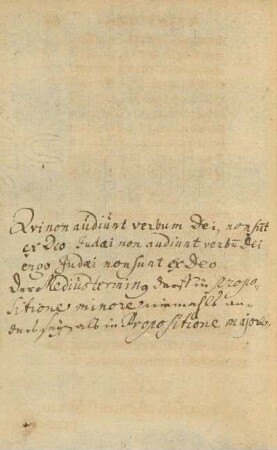 Qui non audiunt verbum Dei, non sūt
ex Deo Judæi non audiunt verbū Dei
ergo Judæi non sunt ex Deo
Der Mediusterming darff in Propo-
sitione minore niemahls an-
ders seyn als in Propositione majore.